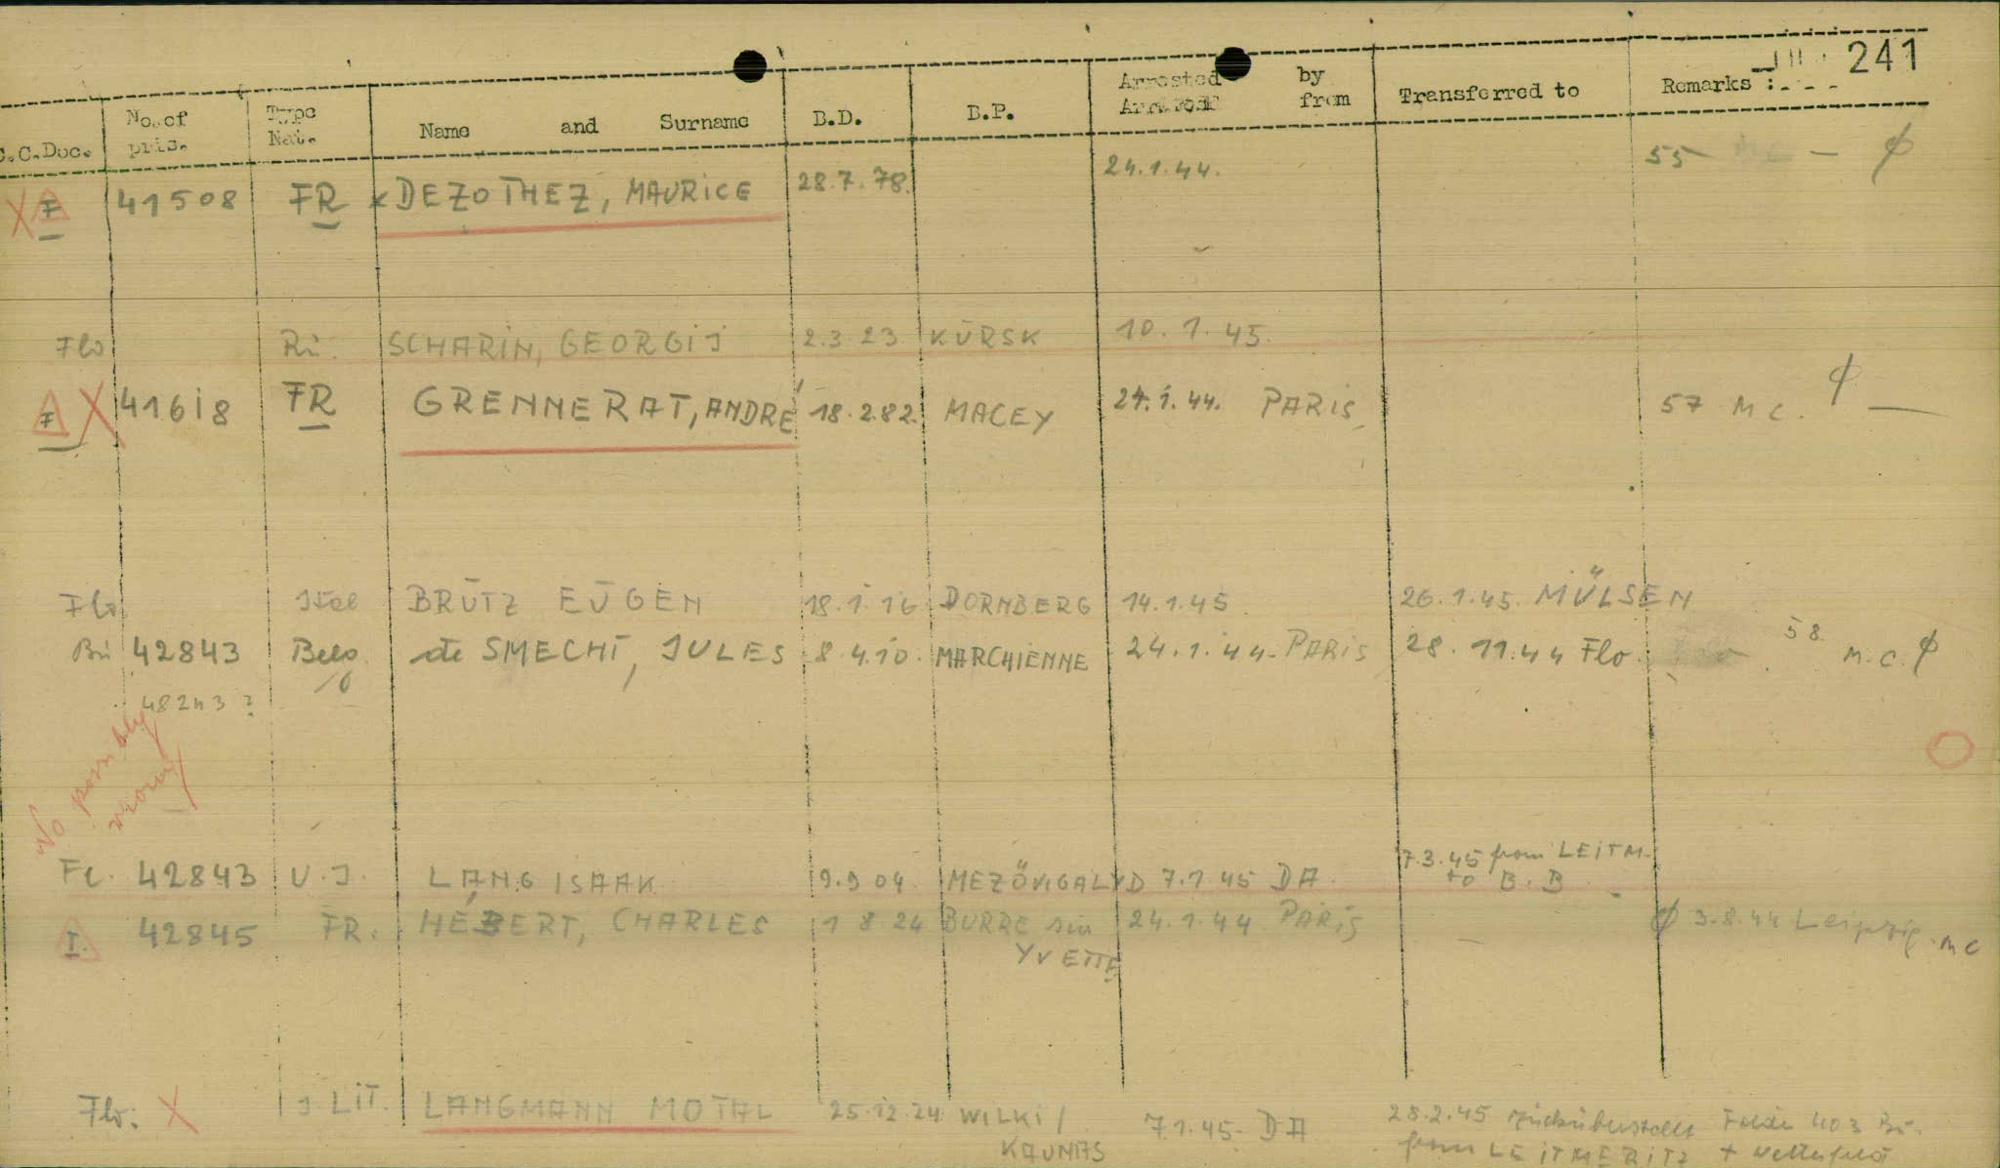 241
C.C.Doc. No. of pris. Type Nat. Name and Surname B.D. B.P. Arrested by from Transferred to Remarks :
X F 41508 FR x DEZOTHEZ, MAURICE 28.7.78. 24.1.44. 55 — ϕ
Flo Ru. SCHARIN, GEORGIJ 2.3 23 KŪRSK 10.1.45.
F X 41618 FR GRENNERAT, ANDRÉ 18.2.82. MACEY 24.1.44. PARIS 57 MC. ϕ —
Flo Ital BRŪTZ EŪGEN 18.1.16 DORNBERG 14.1.45. 26.1.45. MÜLSEN
Bu 42843 Belg de SMECHT, JULES 8.4.10. MARCHIENNE 24.1.44. PARIS 28.11.44 Flo. 58 M.C. ϕ
48243 ?
No possibly wrong
Fl. 42843 U.J. LANG ISAAK 9.9 04. 7.1.45 DA. 7.3.45 from LEITM.
to B.B
I. 42845 FR. HÉBERT, CHARLES 1 8 24 BURRE sur 24.1.44 PARIS — ϕ 3.8.44 Leipzig. MC
YVETTE
Flo: X J LIT. LANGMANN MOTAL 25.12.24 WILKI/ 7.1.45. DA 28.2.45 rücküberstellt 403 Bu.
KAUNAS from LEITMERITZ +